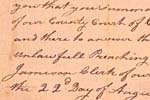 you that you summon
of our County Court of C
and there to answer the
unlawfull Preaching
Jameson Clerk of our
the 22 Day of Augu